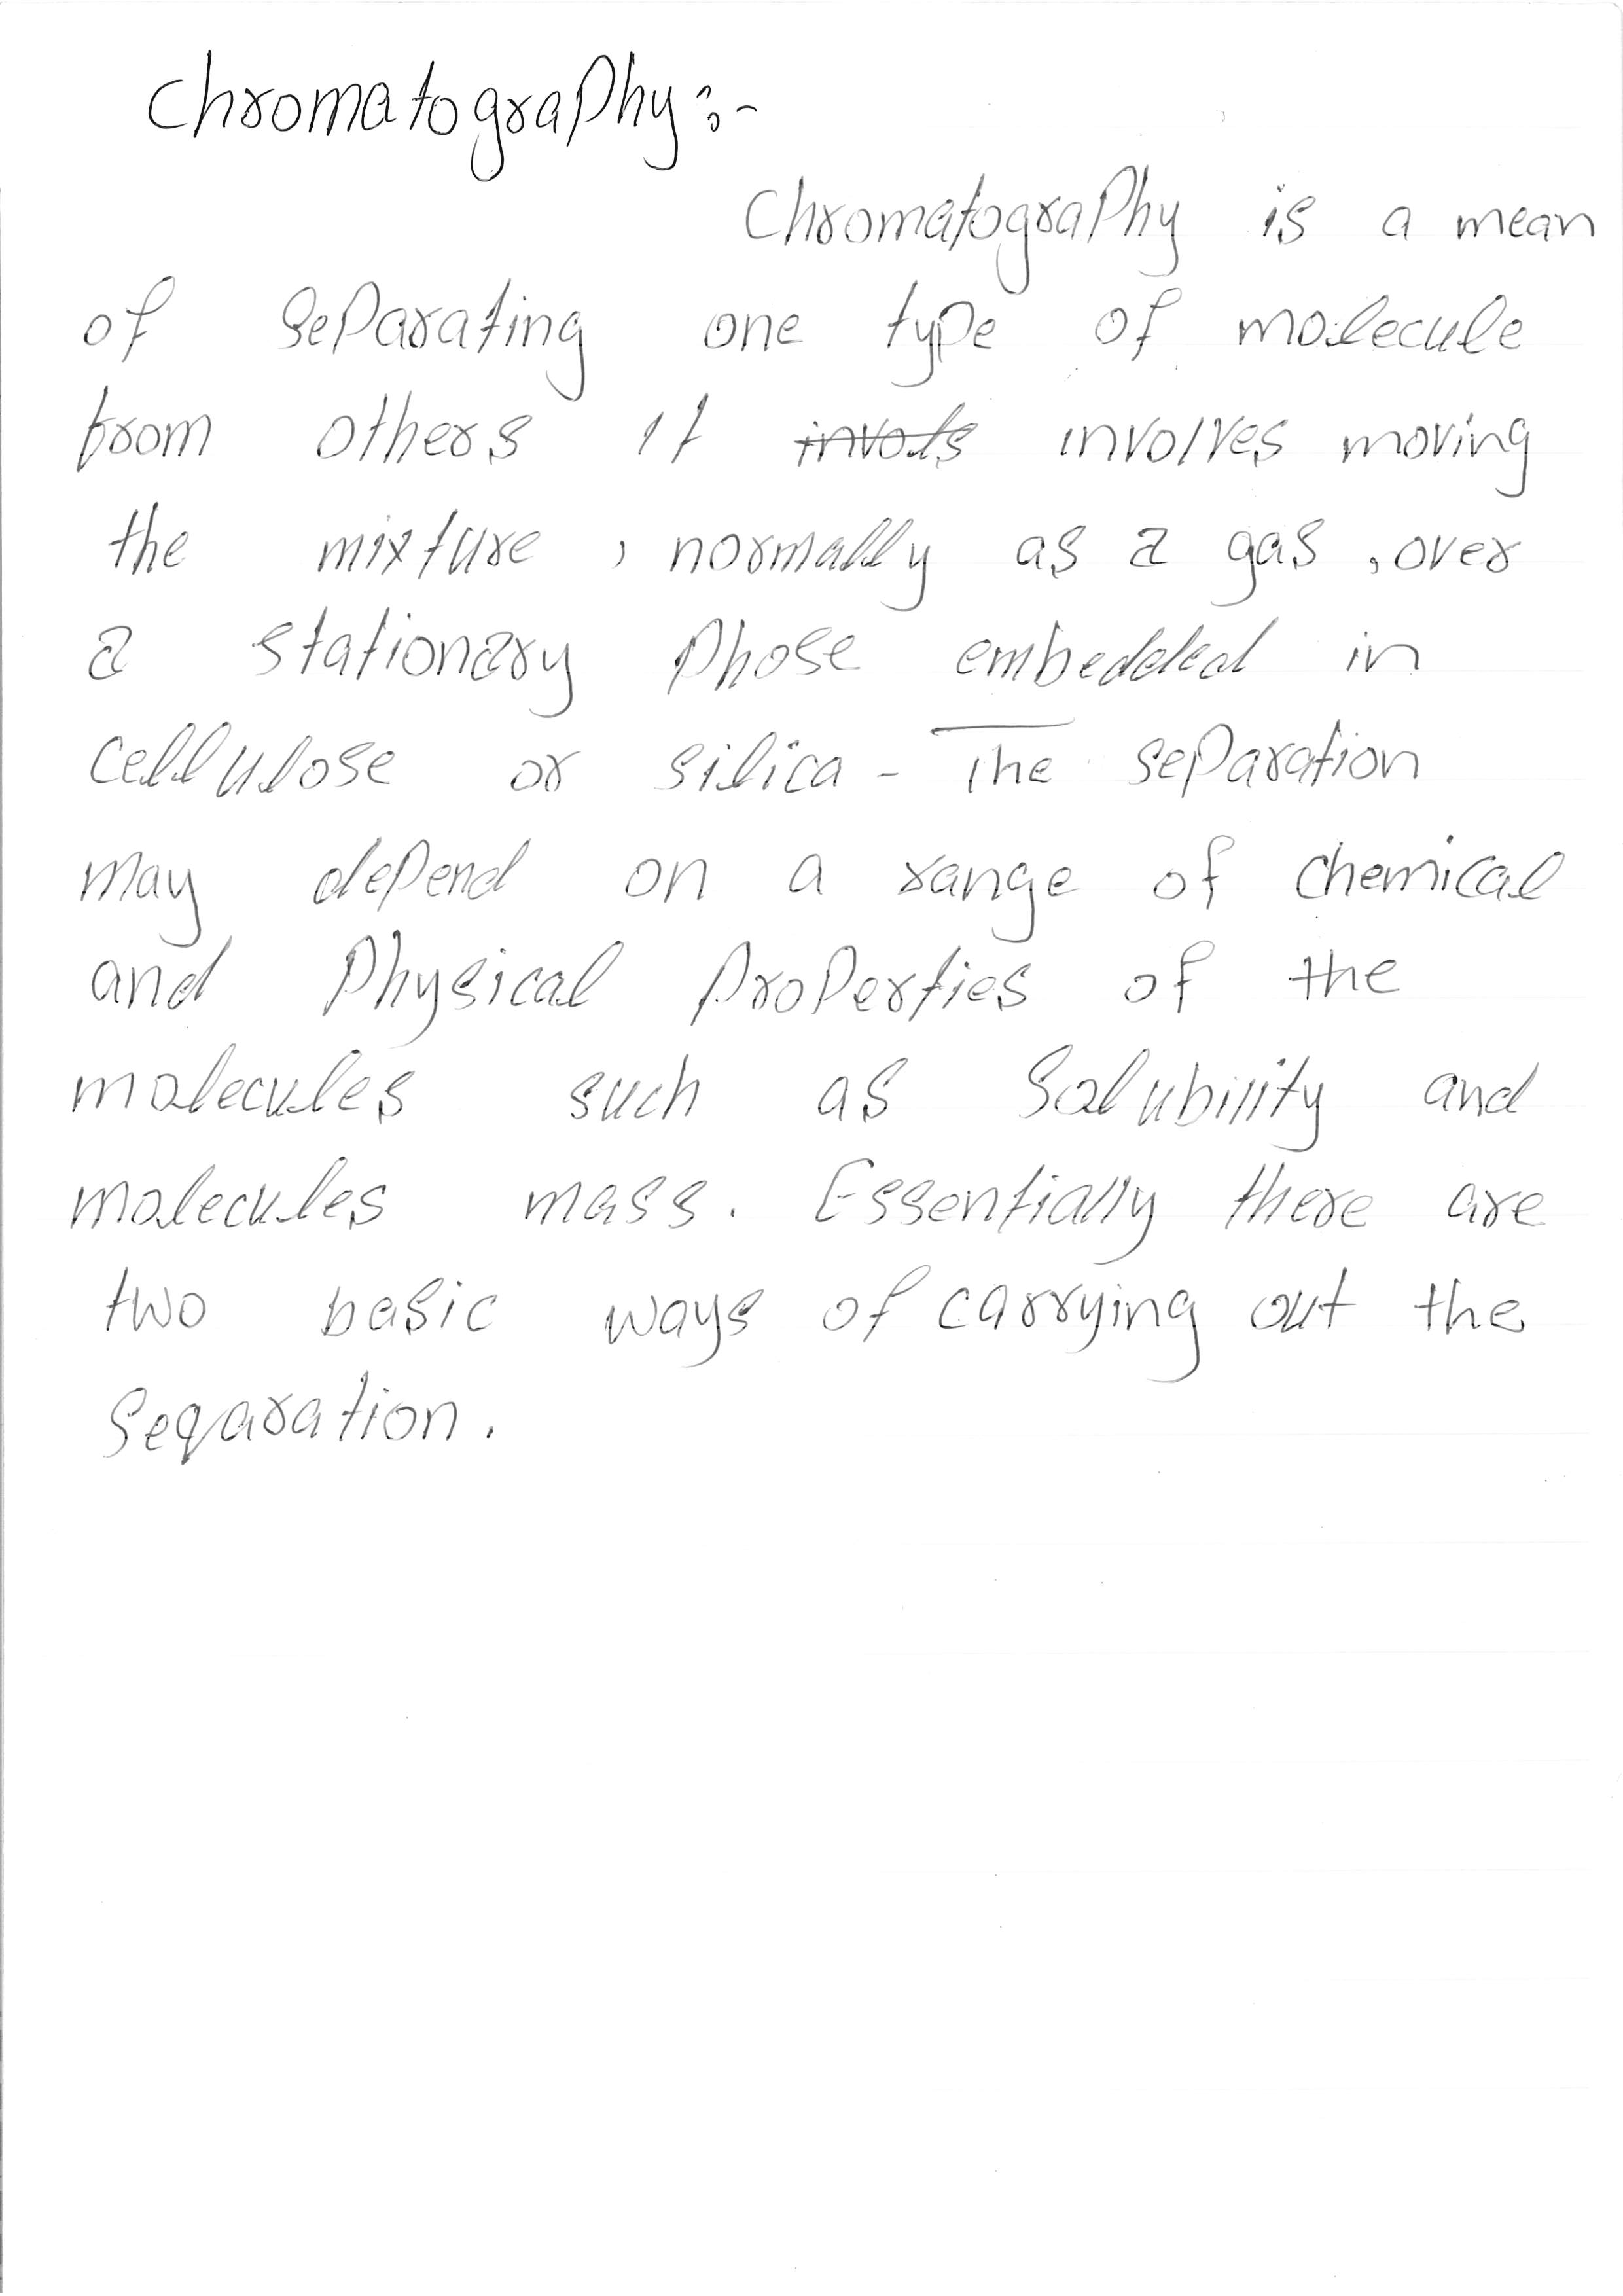 Chromatography:-
Chromatography is a mean
of separating one type of molecule
from others it invols involves moving
the mixture, normally as a gas, over
a stationary phose embedded in
cellulose or silica - The separation
may depend on a range of chemical
and physical properties of the
molecules such as solubility and
molecules mass. Essentially there are
two basic ways of carrying out the
seqaration.